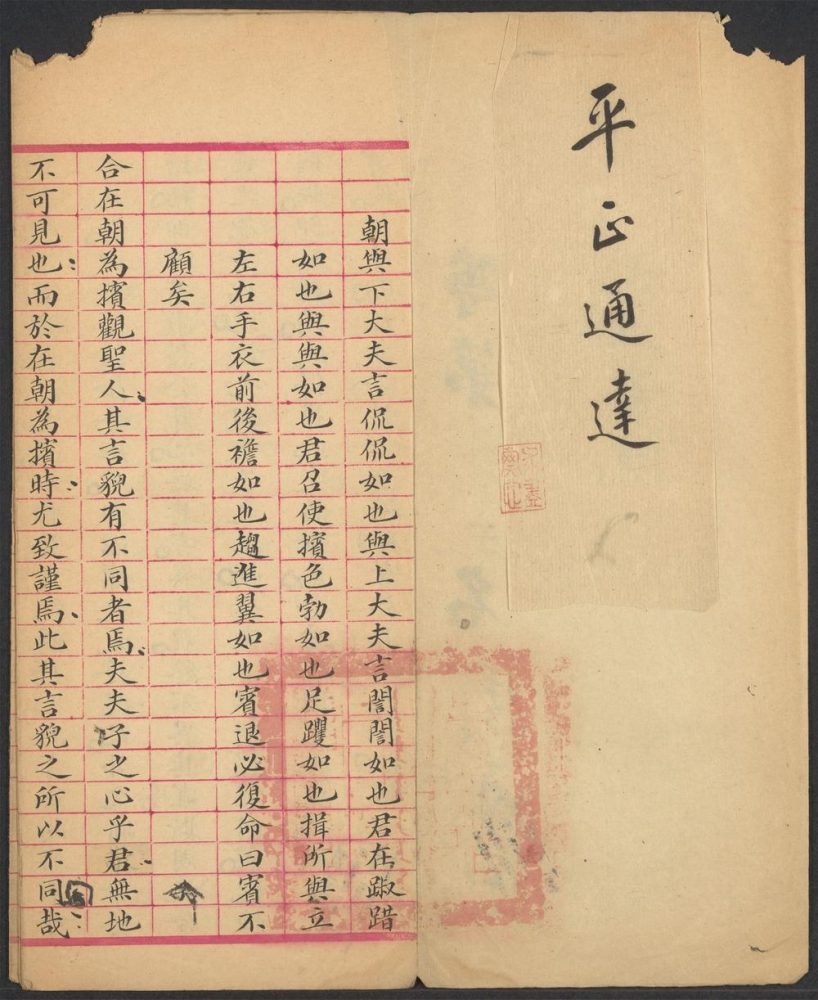 平正通達
朝與下大夫言侃侃如也與上大夫言誾誾如也君在踧踖
如也與與如也君召使擯色勃如也足躩如也揖所與立
左右手衣前後襜如也趨進翼如也賓退必復命曰賓不
顧矣
合在朝為擯觀聖人其言貌有不同者焉夫夫子之心乎君無地
不可見也而於在朝為擯時尤致謹焉此其言貌之所以不同哉